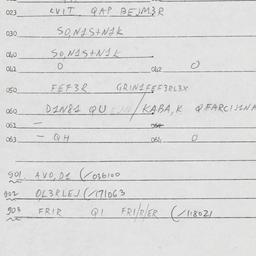 023 LVIT QAP BEJM3R
030 SO,N1S+N1K
040 SO,N1S+N1K
041 0 042 0
050 FEF3R GRIN1FEF3RL3X
060 D1N81 QU / KABA,K QFARCISINA
061 -
063 - QH 064 0
901 AVO,D1 (/036100
902 OL3RLEJ (/171063
903 FRIR QI FRI/R/ER (/118021